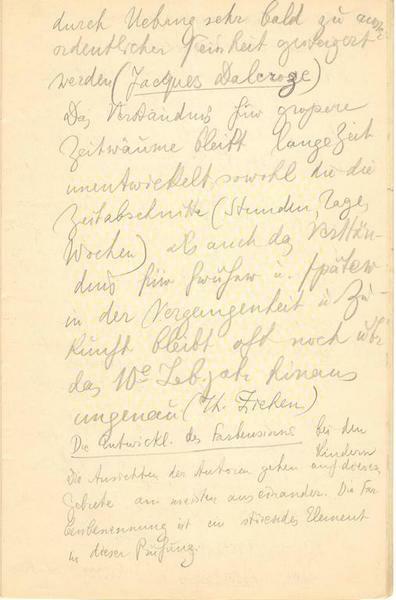 durch Uebung sehr bald zu ausser
ordentlicher Feinheit gesteigert
werden (Jacques Dalcroze)
Das Verständnis für grosere
Zeiträume bleibt lange Zeit
unentwickelt, sowohl die
Zeitabschnitte (Stunden, Tage,
Wochen) als auch das Verstän-
dnis für früher u. später
in der Vergangenheit u Zu-
kunft bleibt oft noch über
das 10e Leb. jahr hinaus
ungenau (Th. Ziehen)
Die Entwickl. des Farbensinns bei den
Kindern
Die Ansichten der Autoren gehen auf diesem
Gebiete am meisten auseinander. Die Far-
benbenennung ist ein störendes Element
in dieser Prüfung.